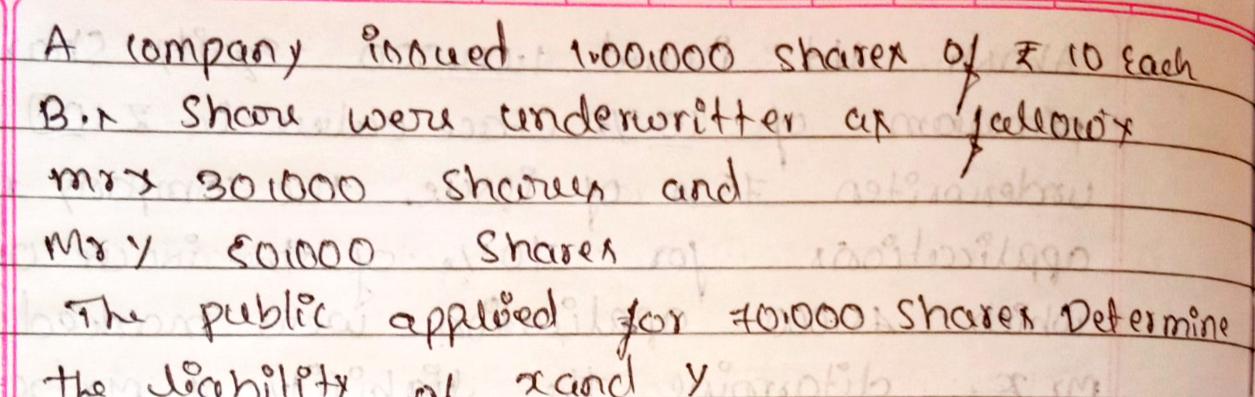 A company issued 1,00,000 shares of ₹ 10 Each
Share were underwritter as fallows
mr x 30,000 Shares and
Mr y 50,000 Shares
The public applied for 70,000 shares Determine
the liability of x and y